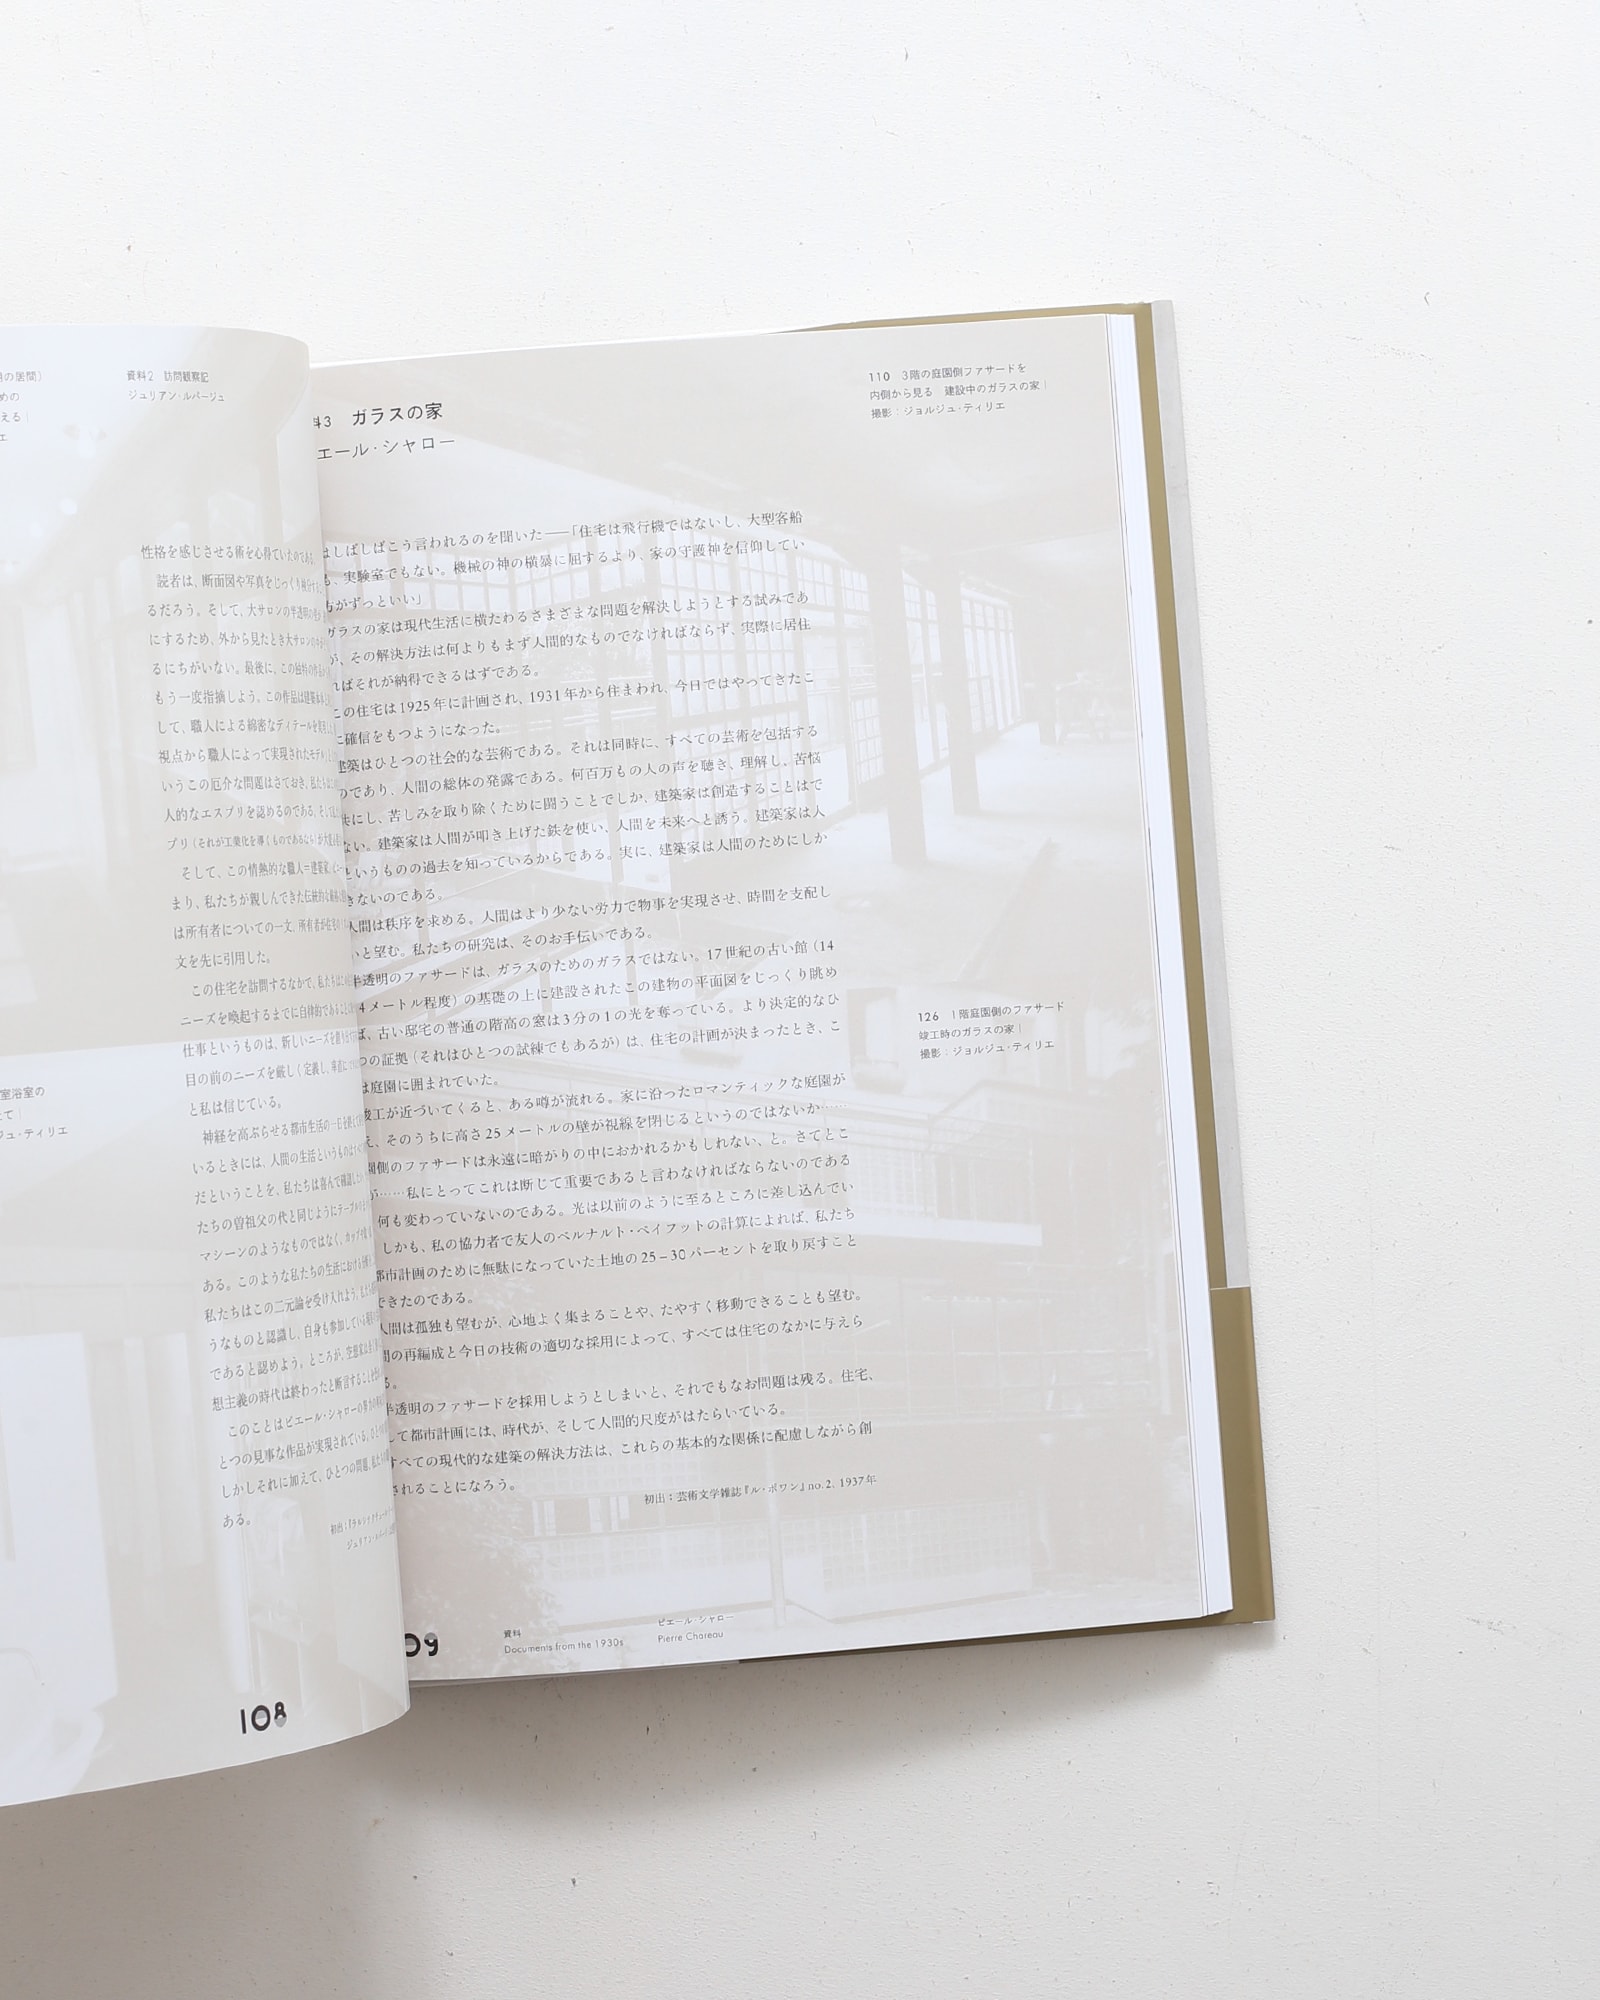 用の居間）
めの
える|
エ
資料2　訪問観察記
ジュリアン・ルパージュ
性格を感じさせる術を心得ていたのである。
読者は、断面図や写真をじっくり検分す
るだろう。そして、大サロンの半透明の
にするため、外から見たとき大サロンの
るにちがいない。最後に、この独特の作品
もう一度指摘しよう。この作品は建築
して、職人による綿密なディテールを
視点から職人によって実現されたモデル
いうこの厄介な問題はさておき、私たちは
人的なエスプリを認めるのである。そして
プリ（それが工業化を導くものであるなら）が大
そして、この情熱的な職人＝建築家
まり、私たちが親しんできた伝統的な
は所有者についての一文、所有者が住宅
文を先に引用した。
この住宅を訪問するなかで、私たちは
ニーズを喚起するまでに自律的であること
仕事というものは、新しいニーズを創り
目の前のニーズを厳しく定義し、率直に
と私は信じている。
神経を高ぶらせる都市生活の一日を
いるときには、人間の生活というものは
だということを、私たちは喜んで確認し
たちの曽祖父の代と同じようにテーブル
マシーンのようなものではなく、カップや
ある。このような私たちの生活における
私たちはこの二元論を受け入れよう。私たち
うなものと認識し、自身も参加している
であると認めよう。ところが、空想家は
想主義の時代は終わったと断言すること
このことはピエール・シャローの努力の
とつの見事な作品が実現されている。ひとつ
しかしそれに加えて、ひとつの問題、私たち
ある。
初出：『ラルシテクチュール
ジュリアン・ルパージュ
室浴室の
て|
ジュ・ティリエ
108
料3　ガラスの家
エール・シャロー
はしばしばこう言われるのを聞いた──「住宅は飛行機ではないし、大型客船
る、実験室でもない。機械の神の横暴に屈するより、家の守護神を信仰してい
方がずっといい」
ガラスの家は現代生活に横たわるさまざまな問題を解決しようとする試みであ
が、その解決方法は何よりもまず人間的なものでなければならず、実際に居住
ればそれが納得できるはずである。
この住宅は1925年に計画され、1931年から住まわれ、今日ではやってきたこ
に確信をもつようになった。
建築はひとつの社会的な芸術である。それは同時に、すべての芸術を包括する
のであり、人間の総体の発露である。何百万もの人の声を聴き、理解し、苦悩
共にし、苦しみを取り除くために闘うことでしか、建築家は創造することはで
ない。建築家は人間が叩き上げた鉄を使い、人間を未来へと誘う。建築家は人
というものの過去を知っているからである。実に、建築家は人間のためにしか
きないのである。
人間は秩序を求める。人間はより少ない労力で物事を実現させ、時間を支配し
いと望む。私たちの研究は、そのお手伝いである。
半透明のファサードは、ガラスのためのガラスではない。17世紀の古い館（14
4メートル程度）の基礎の上に建設されたこの建物の平面図をじっくり眺め
ば、古い邸宅の普通の階高の窓は3分の1の光を奪っている。より決定的なひ
つの証拠（それはひとつの試練でもあるが）は、住宅の計画が決まったとき、こ
は庭園に囲まれていた。
竣工が近づいてくると、ある噂が流れる。家に沿ったロマンティックな庭園が
え、そのうちに高さ25メートルの壁が視線を閉じるというのではないか……
園側のファサードは永遠に暗がりの中におかれるかもしれない、と。さてとこ
が……私にとってこれは断じて重要であると言わなければならないのである
何も変わっていないのである。光は以前のように至るところに差し込んでい
しかも、私の協力者で友人のベルナルト・ベイフットの計算によれば、私たち
都市計画のために無駄になっていた土地の25–30パーセントを取り戻すこと
できたのである。
人間は孤独も望むが、心地よく集まることや、たやすく移動できることも望む。
間の再編成と今日の技術の適切な採用によって、すべては住宅のなかに与えら
る。
半透明のファサードを採用しようとしまいと、それでもなお問題は残る。住宅、
して都市計画には、時代が、そして人間的尺度がはたらいている。
すべての現代的な建築の解決方法は、これらの基本的な関係に配慮しながら創
されることになろう。
初出：芸術文学雑誌『ル・ポワン』no.2, 1937年
110　3階の庭園側ファサードを
内側から見る　建設中のガラスの家|
撮影：ジョルジュ・ティリエ
126　1階庭園側のファサード
竣工時のガラスの家|
撮影：ジョルジュ・ティリエ
09
資料
Documents from the 1930s
ピエール・シャロー
Pierre Chareau